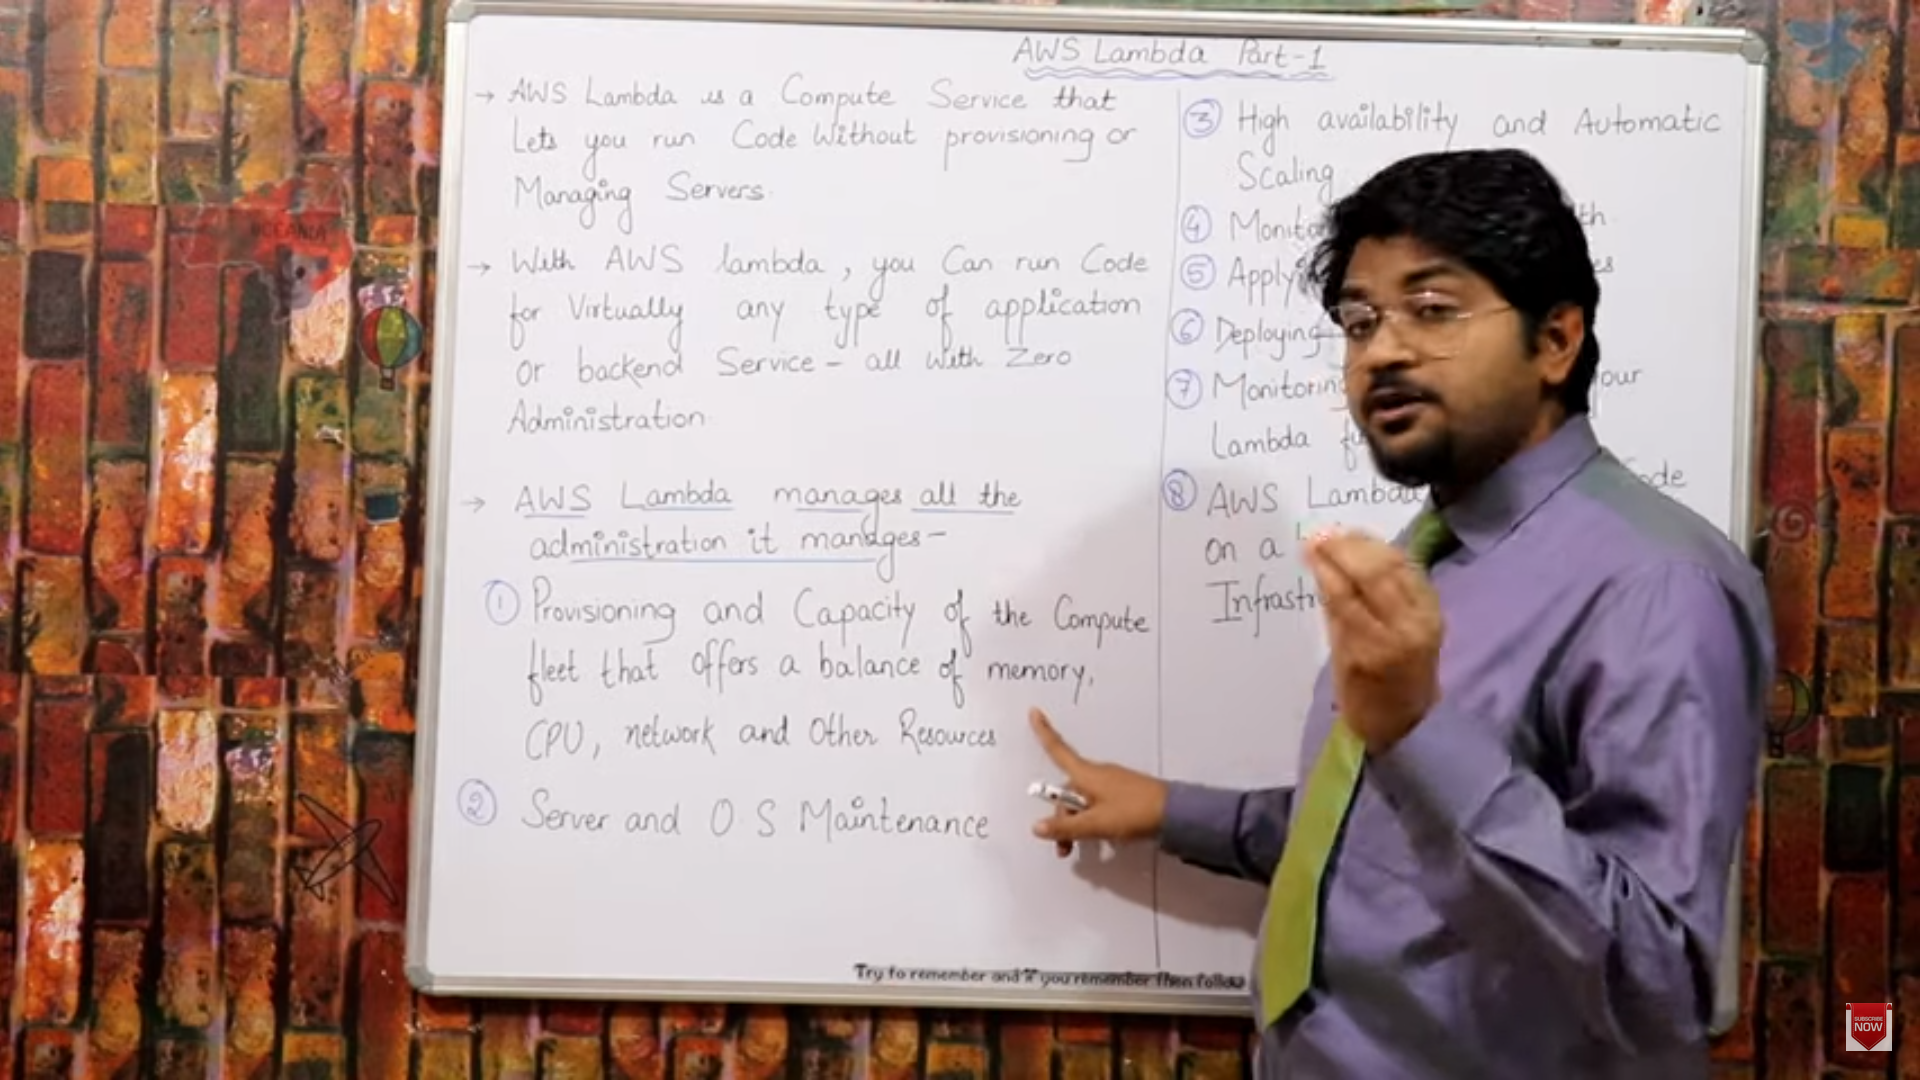 AWS Lambda Part-1
→ AWS Lambda is a Compute Service that
Lets you run Code Without provisioning or
Managing Servers.
→ With AWS lambda, you Can run Code
for Virtually any type of application
or backend Service - all with Zero
Administration.
→ AWS Lambda manages all the
administration it manages-
① Provisioning and Capacity of the Compute
fleet that offers a balance of memory,
CPU, network and Other Resources
② Server and O.S Maintenance
③ High availability and Automatic
Scaling
④
⑤
⑥ Deploying
⑦ Monitoring
Lambda
⑧ AWS Lambda
on a
Try to remember and if you remember then follow
OCEANIA
SUBSCRIBE
NOW